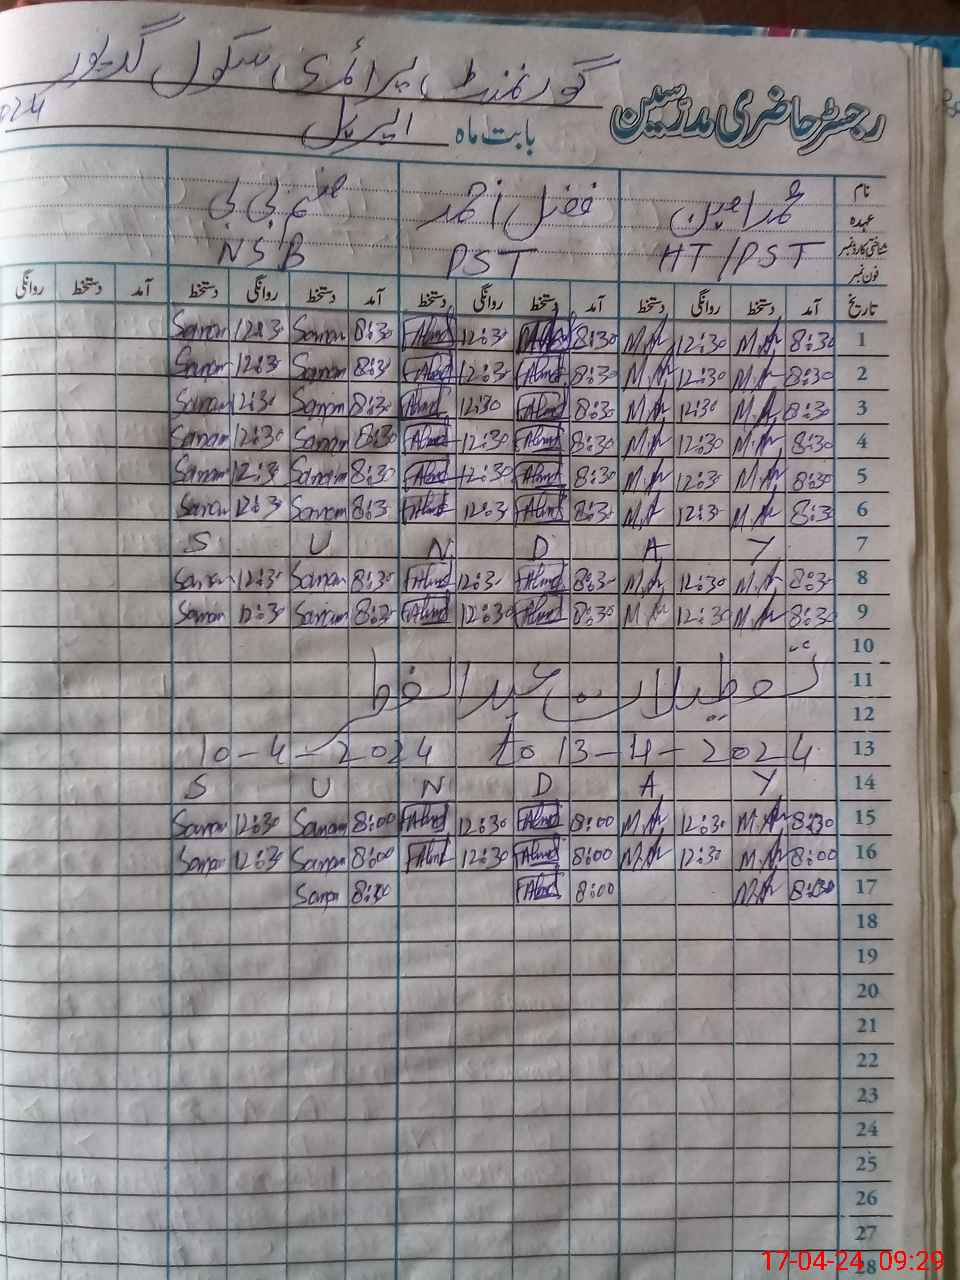 گورنمنٹ پرائمری سکول
رجسٹر حاضری مدرسین
بابت ماہ اپریل
نام محمد امین فضل احمد صنم بی بی
عہدہ
شناختی کارڈ نمبر HT/PST PST NSB
فون نمبر
تاریخ آمد دستخط روانگی دستخط آمد دستخط روانگی دستخط آمد دستخط روانگی دستخط آمد دستخط روانگی
1 8:30 M.A 12:30 M.A 8:30 12:30 FAhmd 8:30 Sanam 12:30 Sanam
2 8:30 M.A 12:30 M.A 8:30 FAhmd 12:30 FAhmd 8:30 Sanam 12:30 Sanam
3 8:30 M.A 12:30 M.A 8:30 FAhmd 12:30 FAhmd 8:30 Sanam 12:30 Sanam
4 8:30 M.A 12:30 M.A 8:30 FAhmd 12:30 FAhmd 8:30 Sanam 12:30 Sanam
5 8:30 M.A 12:30 M.A 8:30 FAhmd 12:30 FAhmd 8:30 Sanam 12:30 Sanam
6 8:30 M.A 12:30 M.A 8:30 FAhmd 12:30 FAhmd 8:30 Sanam 12:30 Sanam
7 S U N D A Y
8 8:30 M.A 12:30 M.A 8:30 FAhmd 12:30 FAhmd 8:30 Sanam 12:30 Sanam
9 8:30 M.A 12:30 M.A 8:30 FAhmd 12:30 FAhmd 8:30 Sanam 12:30 Sanam
10
11 تعطیلات عید الفطر
12
13 10-4-2024 to 13-4-2024
14 S U N D A Y
15 M.A 12:30 M.A 8:00 FAhmd 12:30 FAhmd 8:00 Sanam 12:30 Sanam
16 8:00 M.A 12:30 M.A 8:00 FAhmd 12:30 FAhmd 8:00 Sanam 12:30 Sanam
17 M.A 8:00 FAhmd 8:00 Sanam
18
19
20
21
22
23
24
25
26
27
28
17-04-24 09:29